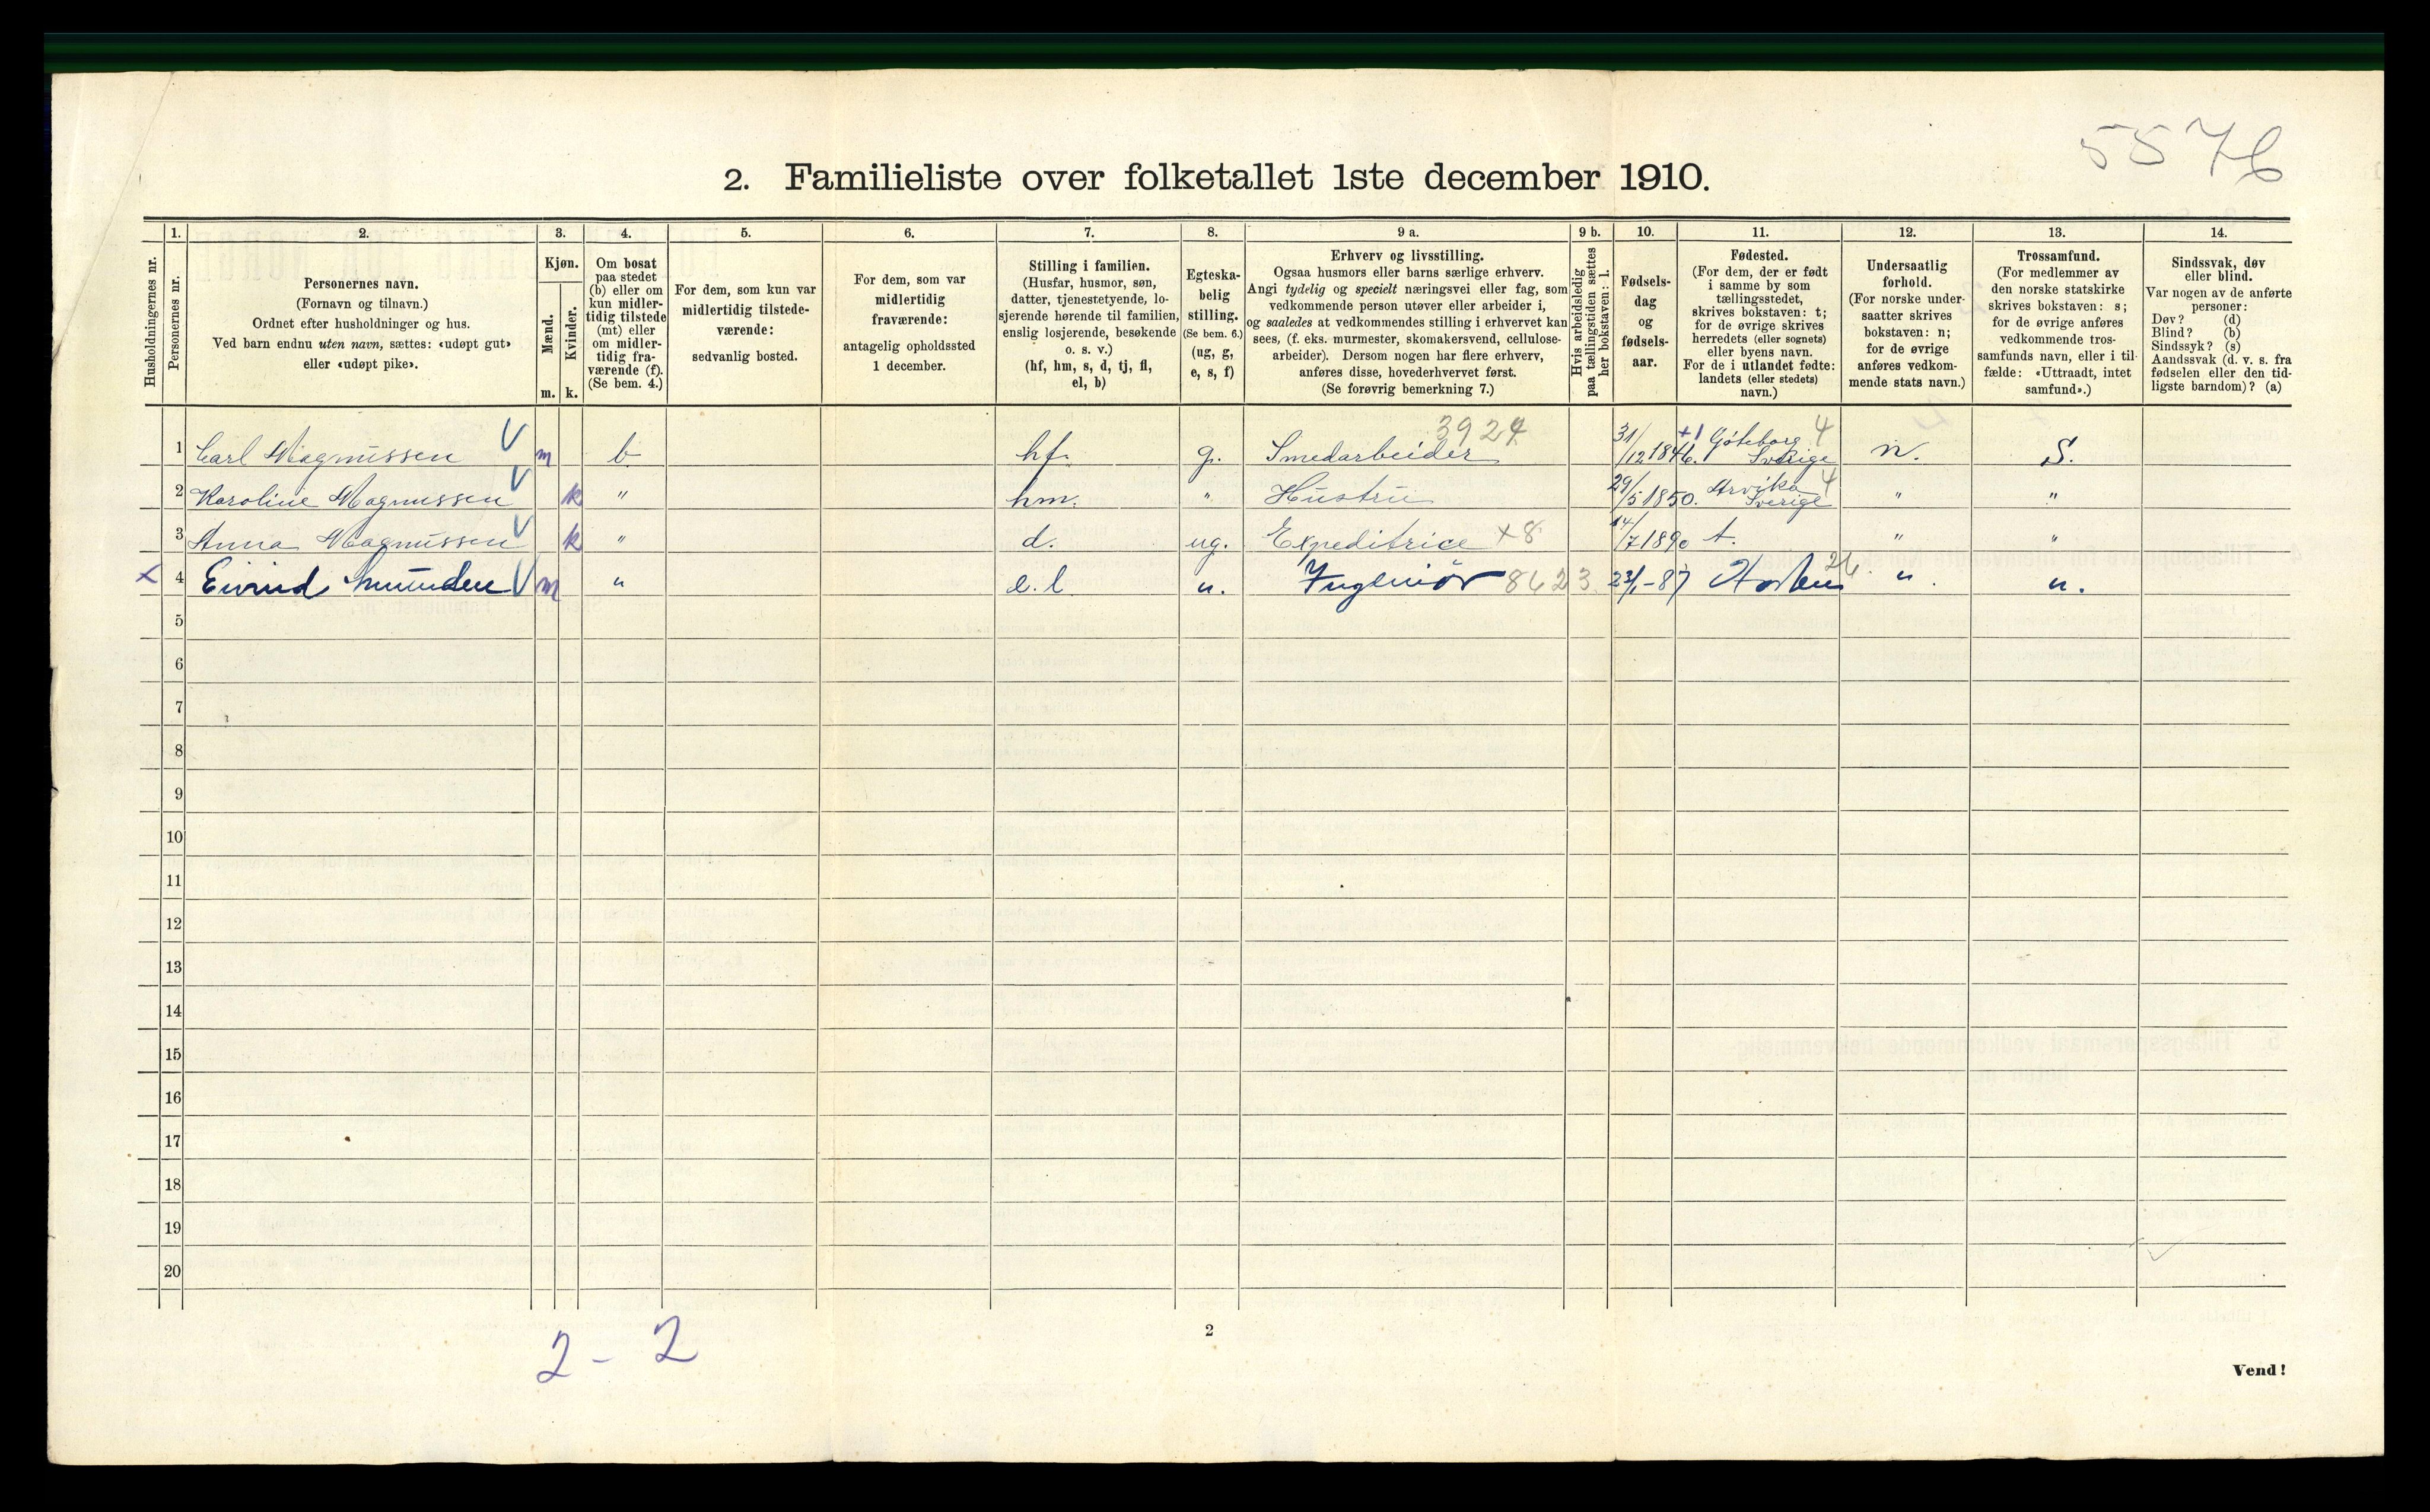 5576
2. Familieliste over folketallet 1ste december 1910.
1. 2. 3. 4. 5. 6. 7. 8. 9 a. 9 b. 10. 11. 12. 13. 14.
Husholdningernes nr.
Personernes nr.
Personernes navn.
(Fornavn og tilnavn.)
Ordnet efter husholdninger og hus.
Ved barn endnu uten navn, sættes: «udøpt gut»
eller «udøpt pike».
Kjøn.
Mænd.
Kvinder.
m. k.
Om bosat
paa stedet
(b) eller om
kun midler-
tidig tilstede
(mt) eller
om midler-
tidig fra-
værende (f).
(Se bem. 4.)
For dem, som kun var
midlertidig tilstede-
værende:
sedvanlig bosted.
For dem, som var
midlertidig
fraværende:
antagelig opholdssted
1 december.
Stilling i familien.
(Husfar, husmor, søn,
datter, tjenestetyende, lo-
sjerende hørende til familien,
enslig losjerende, besøkende
o. s. v.)
(hf, hm, s, d, tj, fl,
el, b)
Egteska-
belig
stilling.
(Se bem. 6.)
(ug, g,
e, s, f)
Erhverv og livsstilling.
Ogsaa husmors eller barns særlige erhverv.
Angi tydelig og specielt næringsvei eller fag, som
vedkommende person utøver eller arbeider i,
og saaledes at vedkommendes stilling i erhvervet kan
sees, (f. eks. murmester, skomakersvend, cellulose-
arbeider). Dersom nogen har flere erhverv,
anføres disse, hovederhvervet først.
(Se forøvrig bemerkning 7.)
Hvis arbeidsledig
paa tællingstiden sættes
her bokstaven: l.
Fødsels-
dag
og
fødsels-
aar.
Fødested.
(For dem, der er født
i samme by som
tællingsstedet,
skrives bokstaven: t;
for de øvrige skrives
herredets (eller sognets)
eller byens navn.
For de i utlandet fødte:
landets (eller stedets)
navn.)
Undersaatlig
forhold.
(For norske under-
saatter skrives
bokstaven: n;
for de øvrige
anføres vedkom-
mende stats navn.)
Trossamfund.
(For medlemmer av
den norske statskirke
skrives bokstaven: s;
for de øvrige anføres
vedkommende tros-
samfunds navn, eller i til-
fælde: «Uttraadt, intet
samfund».)
Sindssvak, døv
eller blind.
Var nogen av de anførte
personer:
Døv? (d)
Blind? (b)
Sindssyk? (s)
Aandssvak (d. v. s. fra
fødselen eller den tid-
ligste barndom)? (a)
3924 +1 4
1 Carl Magnussen V m b hf. g. Smedarbeider 31/12 1846. Göteborg Sverige n. S.
2 Karoline Magnussen V k " hm. " Hustru 29/5 1850. Arvika Sverige 4 " "
3 Anna Magnussen V k " d. ug. Expeditrice +8 14/7 1890 t. " "
x 4 Eivind V m " e.l. u. Ingeniör 8623 23/1-87 Horten " . " .
5
6
7
8
9
10
11
12
13
14
15
16
17
18
19
20
2 - 2
2
Vend!